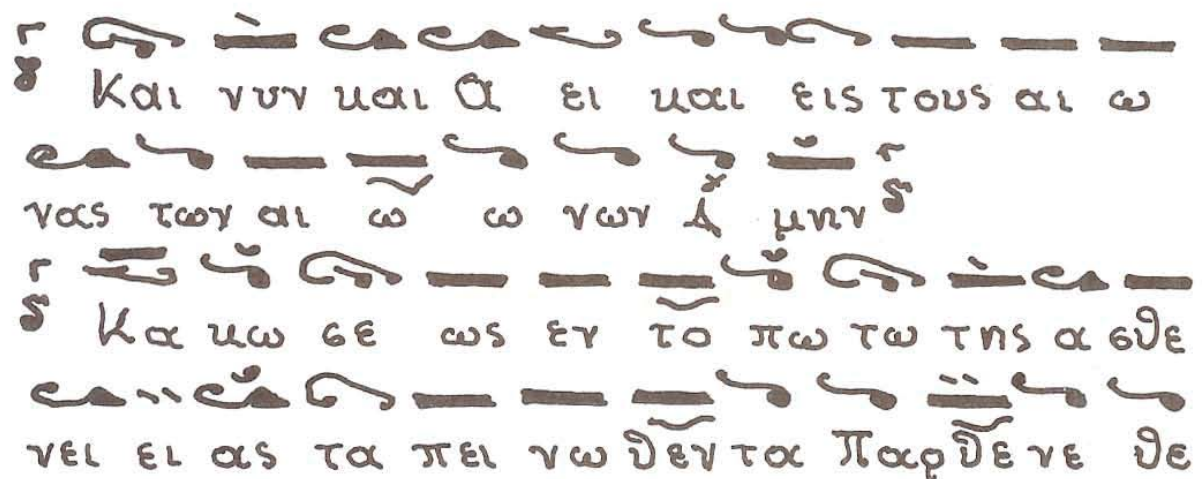 Και νυν και Α ει και εις τους αι ω
νας των αι ω ω νων Α μην
Κα κω σε ως εν το πω τω της α σθε
νει ει ας τα πει νω θεν τα Παρ θε νε θε